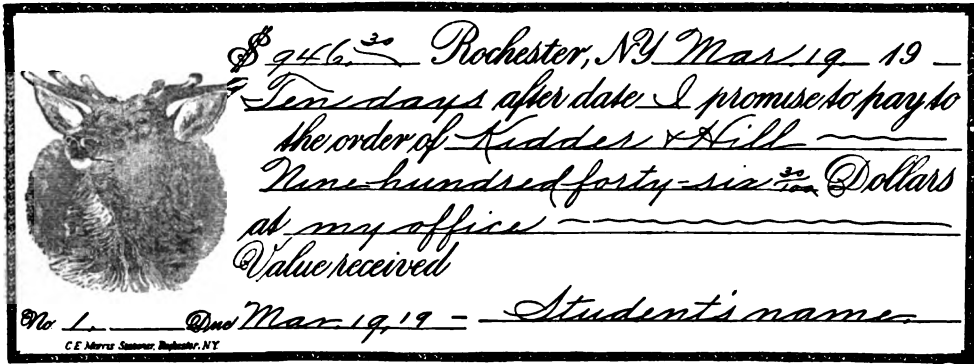 $ 946. 30 Rochester, NY Mar. 19. 19 —
Ten days after date I promise to pay to
the order of Kidder & Hill
Nine hundred forty-six 30/100 Dollars
at my office
Value received
No 1. Due Mar. 19, 19 — Student's name.
C E Morris Stationer, Rochester, N.Y.